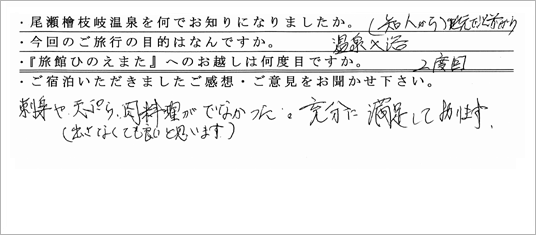 ・尾瀬檜枝岐温泉を何でお知りになりましたか。(知人から)
・今回のご旅行の目的はなんですか。 温泉入浴
・『旅館ひのえまた』へのお越しは何度目ですか。 2度目
・ご宿泊いただきましたご感想・ご意見をお聞かせ下さい。
刺身や天ぷら、肉料理がでなかった。充分に満足しております。
(出さなくても良いと思います)